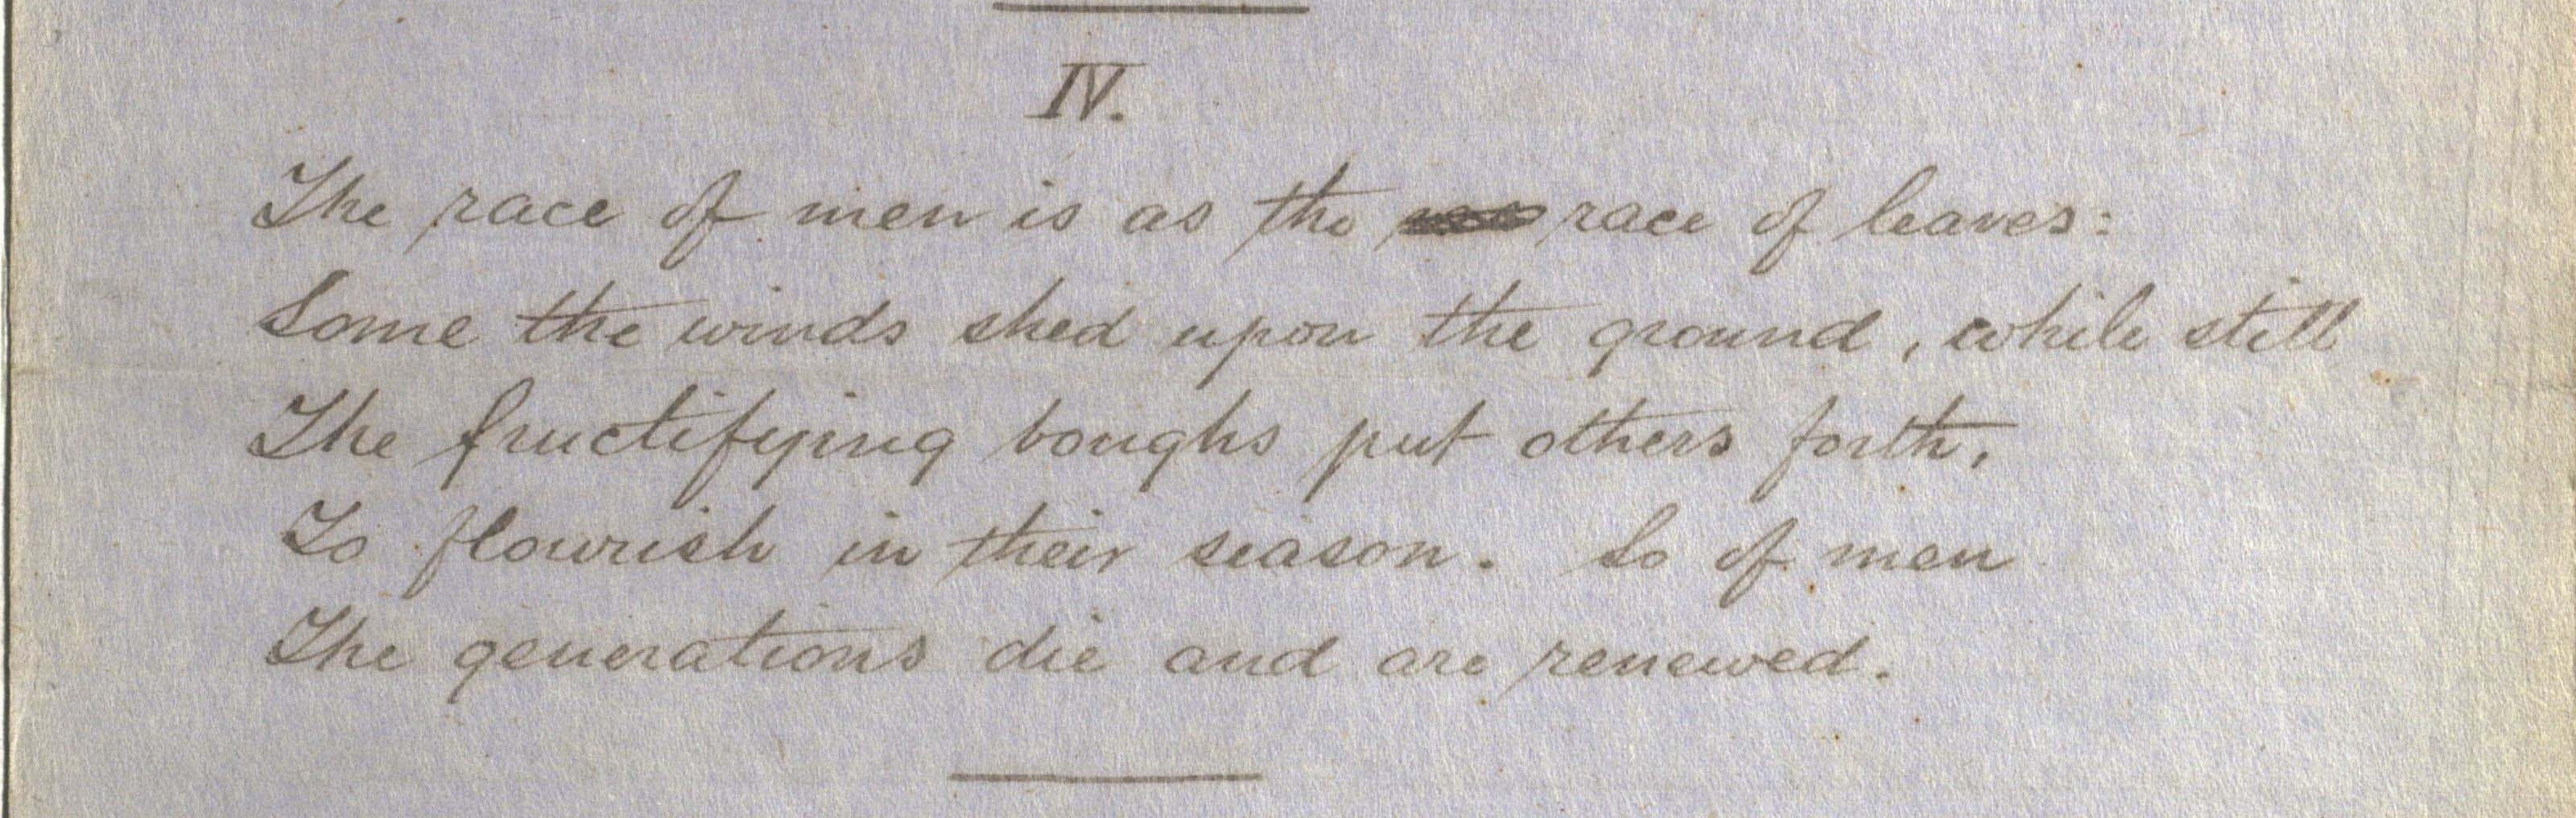 IV.
The race of men is as the race of leaves:
Some the winds shed upon the ground, while still
The fructifying boughs put others forth,
To flourish in their season. So of men
The generations die and are renewed.